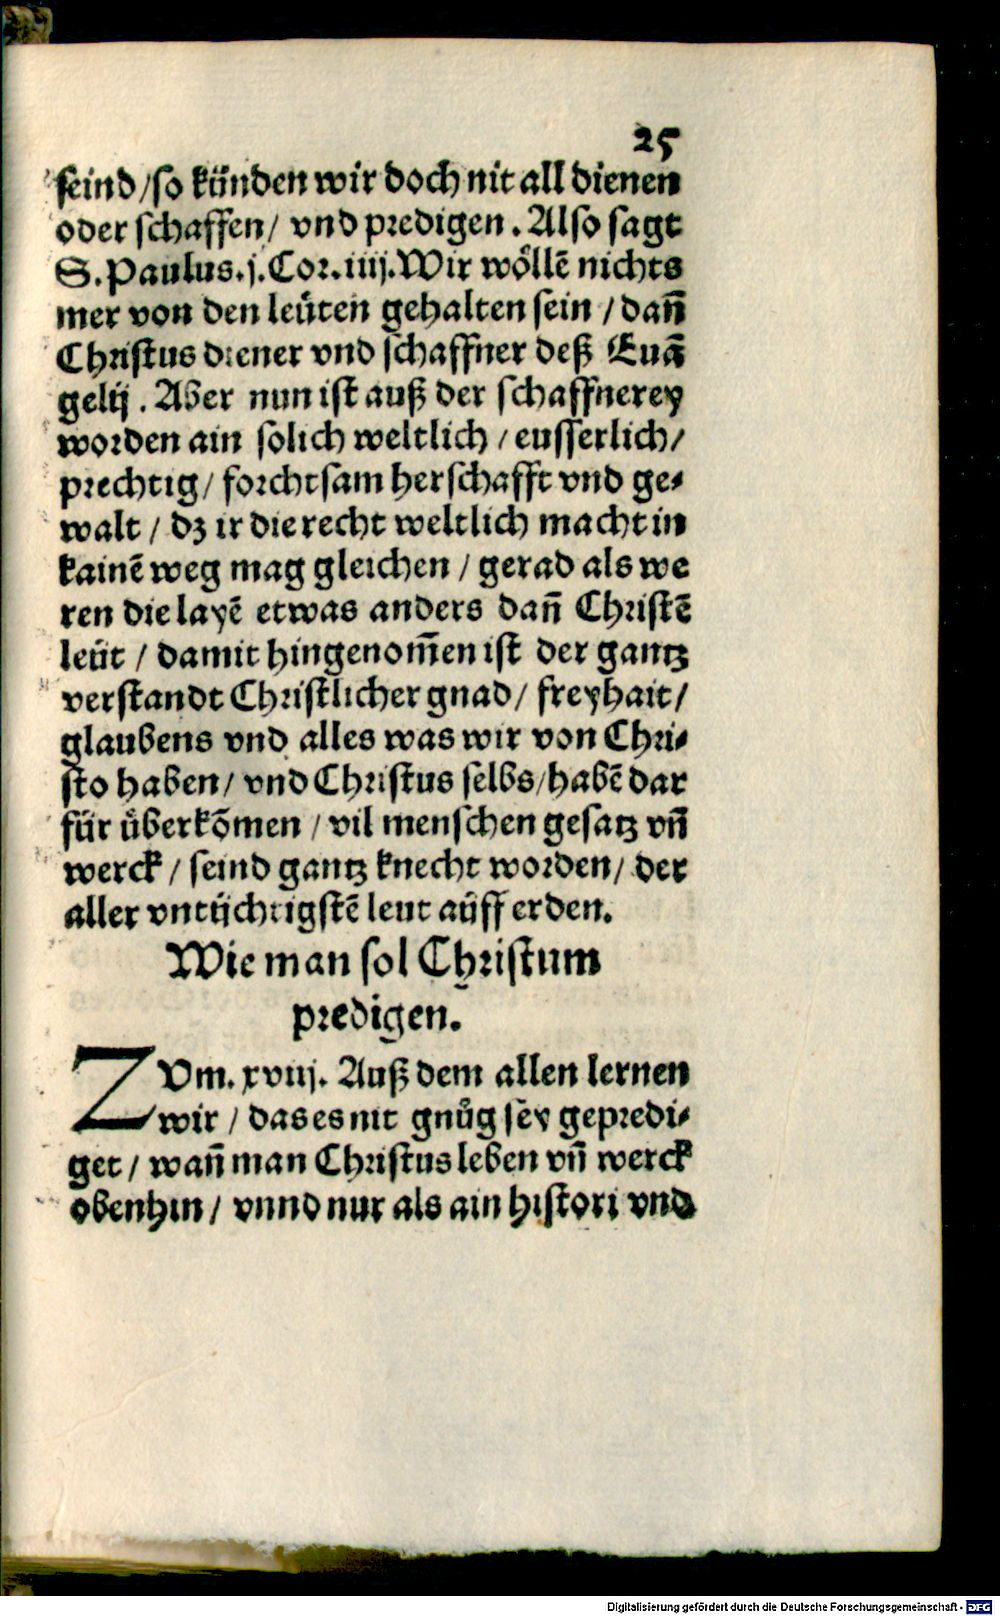 25
seind / so künden wir doch nit all dienen
oder schaffen / vnd predigen. Also sagt
S. Paulus. j. Cor. iiij. Wir wöllē nichts
mer von den leüten gehalten sein / dañ
Christus diener vnd schaffner deß Euā
gelij. Aber nun ist auß der schaffnerey
worden ain solich weltlich / eusserlich /
prechtig / forchtsam herschafft vnd ge-
walt / dz ir die recht weltlich macht in
kainē weg mag gleichen / gerad als we
ren die layē etwas anders dañ Christē
leüt / damit hingenom̃en ist der gantz
verstandt Christlicher gnad / freyhait /
glaubens vnd alles was wir von Chri-
sto haben / vnd Christus selbs / habē dar
für überkōmen / vil menschen gesatz vñ
werck / seind gantz knecht worden / der
aller vntüchtigstē leut aüff erden.
Wie man sol Christum
predigen.
ZVm. xviij. Auß dem allen lernen
wir / das es nit gnůg sey gepredi-
get / wañ man Christus leben vñ werck
obenhin / vnnd nur als ain histori vnd
Digitalisierung gefördert durch die Deutsche Forschungsgemeinschaft - DFG